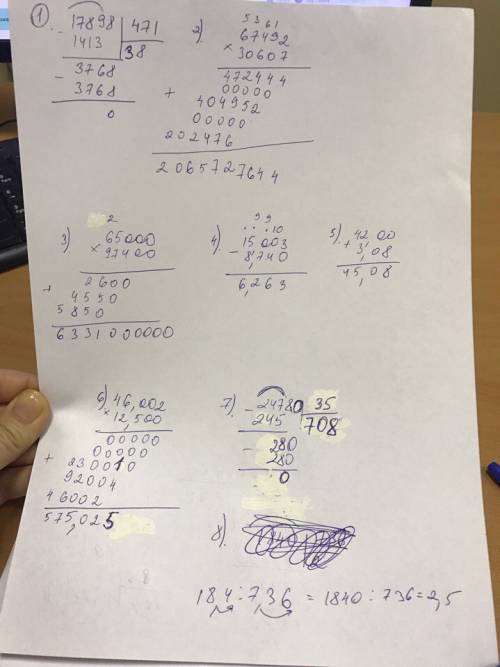 1
- 17898 | 471
1413 | 38
- 3768
3768
0
2)
5361
67492
× 30607
472444
+ 00000
404952
00000
202476
2065727644
3)
2
65000
× 97400
2600
+ 4550
5850
6331000000
4)
9 9
. . . 10
15003
- 8,740
6,263
5)
4200
+ 3,08
45,08
6)
46,002
× 12,500
00000
00000
+ 230010
92004
46002
575,025
7)
- 24780 | 35
245 | 708
- 280
280
0
8)
184 : 7,36 = 1840 : 736 = 2,5